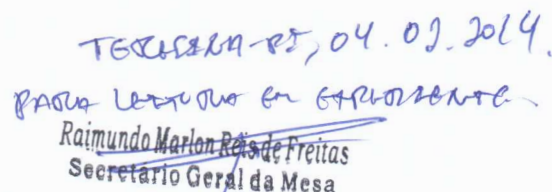 TERESINA-PI, 04.02.2014.
PARA LEITURA EM EXPEDIENTE
Raimundo Marlon Reis de Freitas
Secretário Geral da Mesa